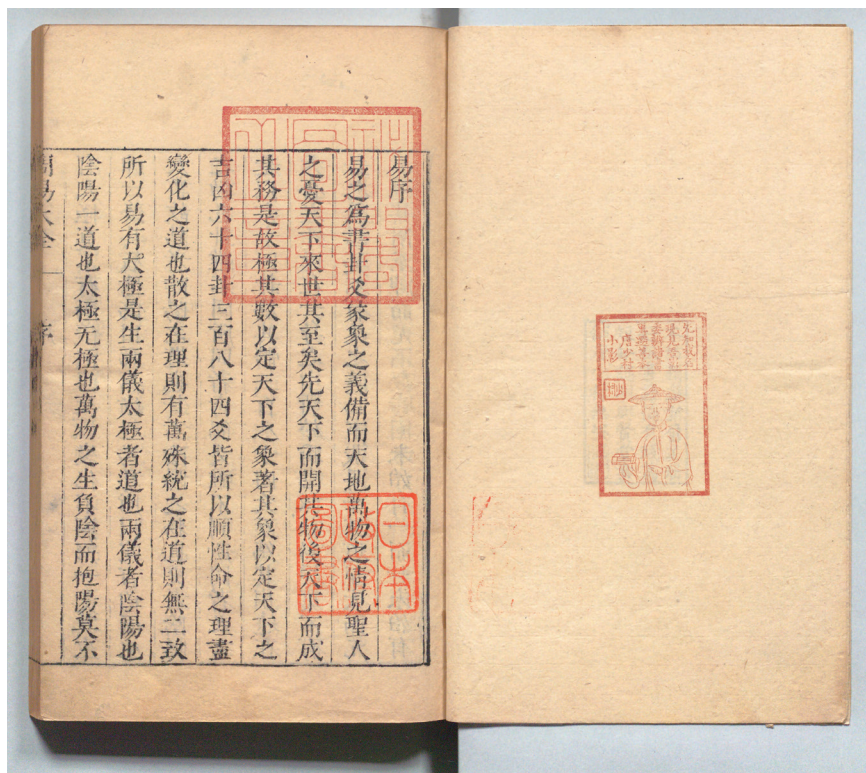 先知我名
現見吾影
委辦諸書
專購善本
唐少村
小影
易序
易之爲書卦爻彖象之義備而天地萬物之情見聖人
之憂天下來世其至矣先天下而開其物後天下而成
其務是故極其數以定天下之象著其象以定天下之
吉凶六十四卦三百八十四爻皆所以順性命之理盡
變化之道也散之在理則有萬殊統之在道則無二致
所以易有太極是生兩儀太極者道也兩儀者陰陽也
陰陽一道也太極无極也萬物之生負陰而抱陽莫不
周易大全 序
日本
政府
圖書